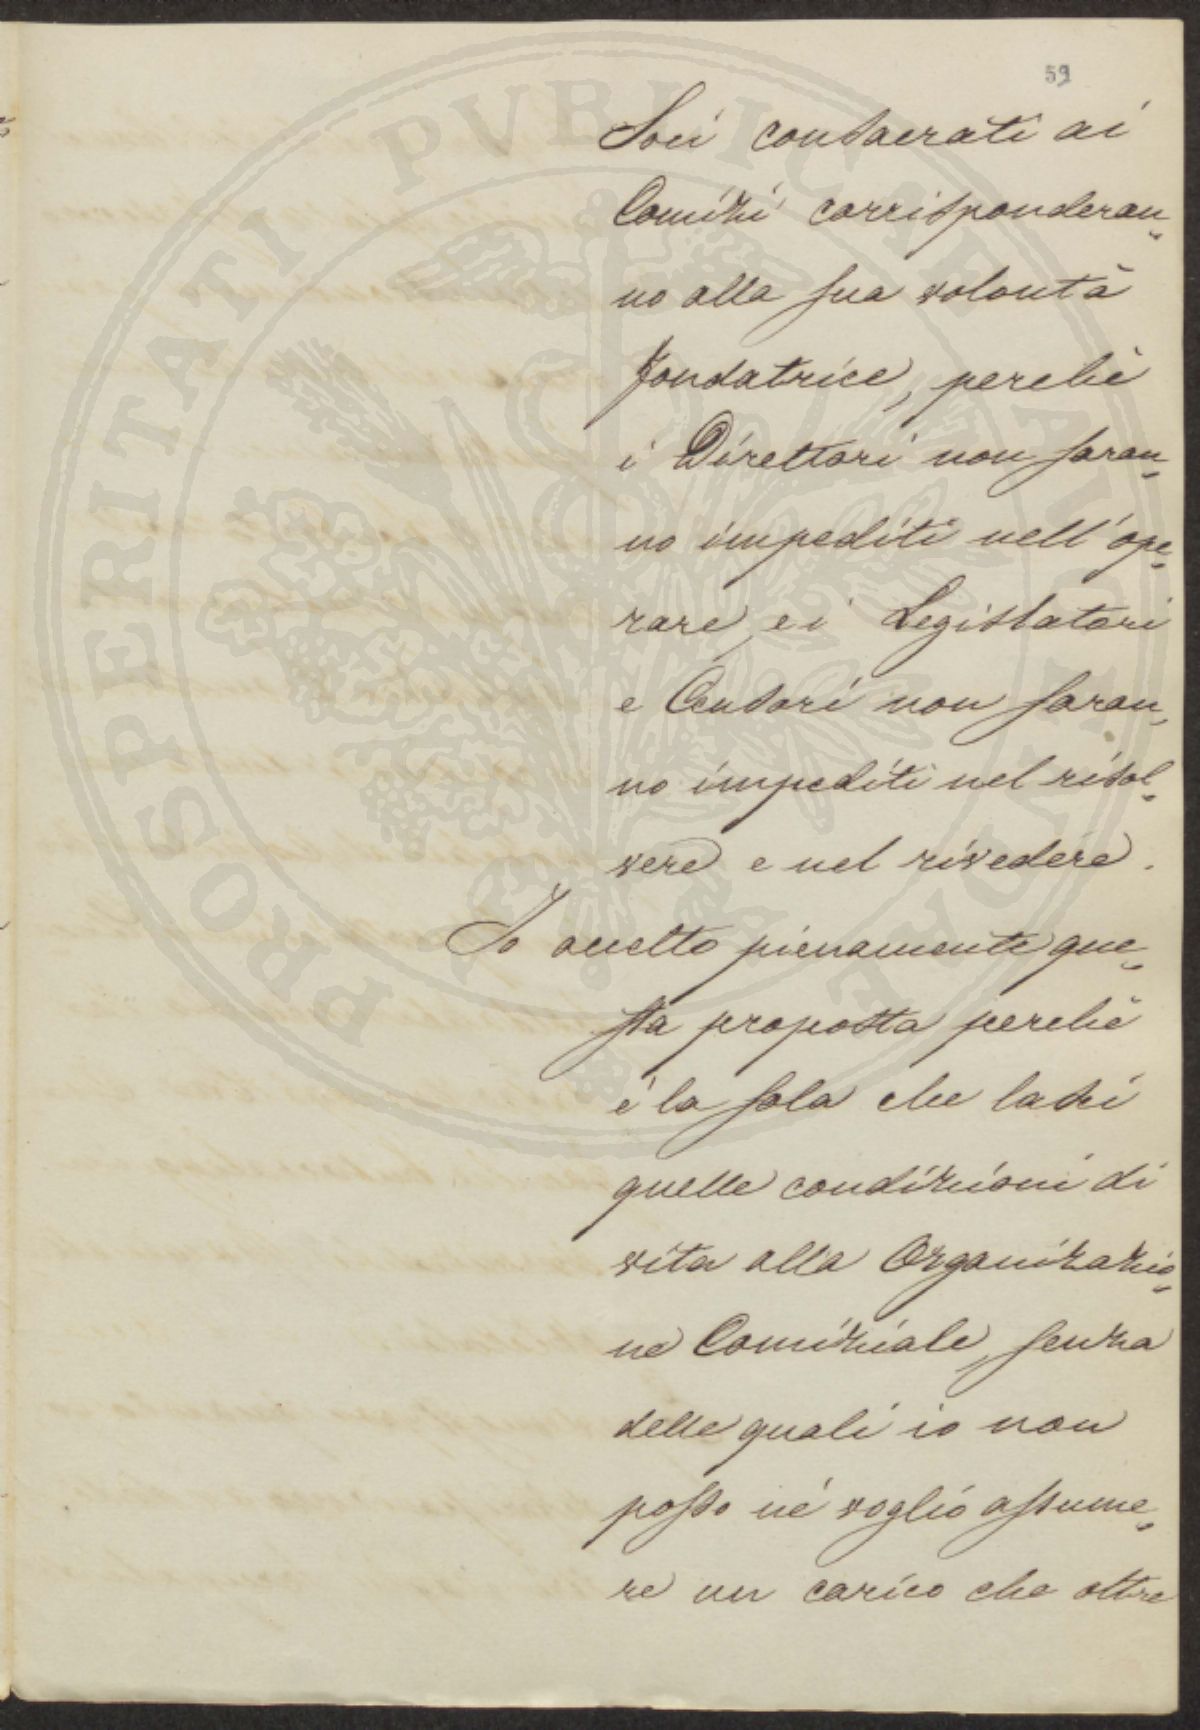 59
Soci consacrati ai
Comizi corrisponderan-
no alla sua volontà
fondatrice, perchè
i Direttori non saran-
no impediti nell'ope-
rare, e i Legislatori
e Censori non saran-
no impediti nel risol-
vere e nel rivedere.
Io accetto pienamente que-
sta proposta perchè
è la sola che lasci
quelle condizioni di
vita alla Organizazio-
ne Comiziale, senza
delle quali io non
posso nè voglio assume-
re un carico che oltre
PROSPERITATI PVBLICAE AVGENDAE